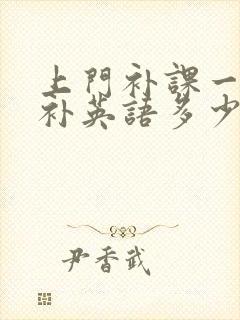 上門补課一
补英語多少
尹香武